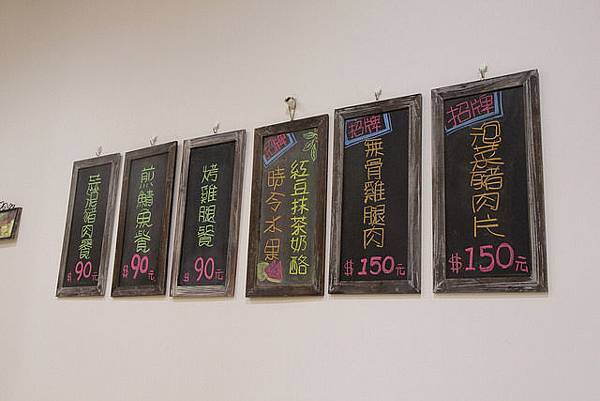 麻油豬肉餐
$90元
煎鯖魚餐
$90元
烤雞腿餐
$90元
招牌
紅豆抹茶奶酪
時令水果
招牌
無骨雞腿肉
$150元
招牌
泡菜豬肉片
$150元